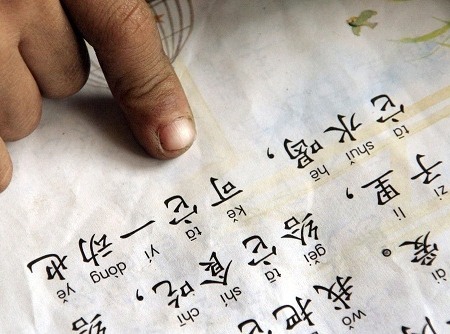 爱。我把它
ài wǒ
子里，给它食吃，给
zi lǐ gěi tā shí chī
它水喝，可它一动也
tā shuǐ hē kě tā yí dòng yě